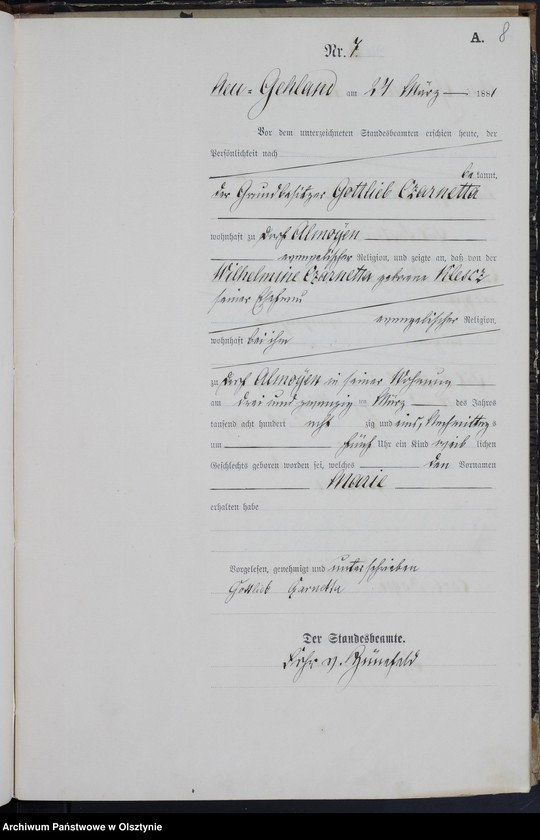 A. 8
Nr. 7
Neu-Gehland am 27 März 1881
Vor dem unterzeichneten Standesbeamten erschien heute, der
Persönlichkeit nach
be kannt,
der Grundbesitzer Gottlieb Czarnetta
wohnhaft zu Dorf Almoyen
evangelischer Religion, und zeigte an, daß von der
Wilhelmine Czarnetta geborene Klescz
seiner Ehefrau
evangelischer Religion,
wohnhaft bei ihm
zu Dorf Almoyen in seiner Wohnung
am drei und zwanzig ten März des Jahres
tausend acht hundert acht zig und eins, Nachmittags
um fünf Uhr ein Kind weib lichen
Geschlechts geboren worden sei, welches den Vornamen
Marie
erhalten habe
Vorgelesen, genehmigt und unterschrieben
Gottlieb Czarnetta
Der Standesbeamte.
v.
Archiwum Państwowe w Olsztynie